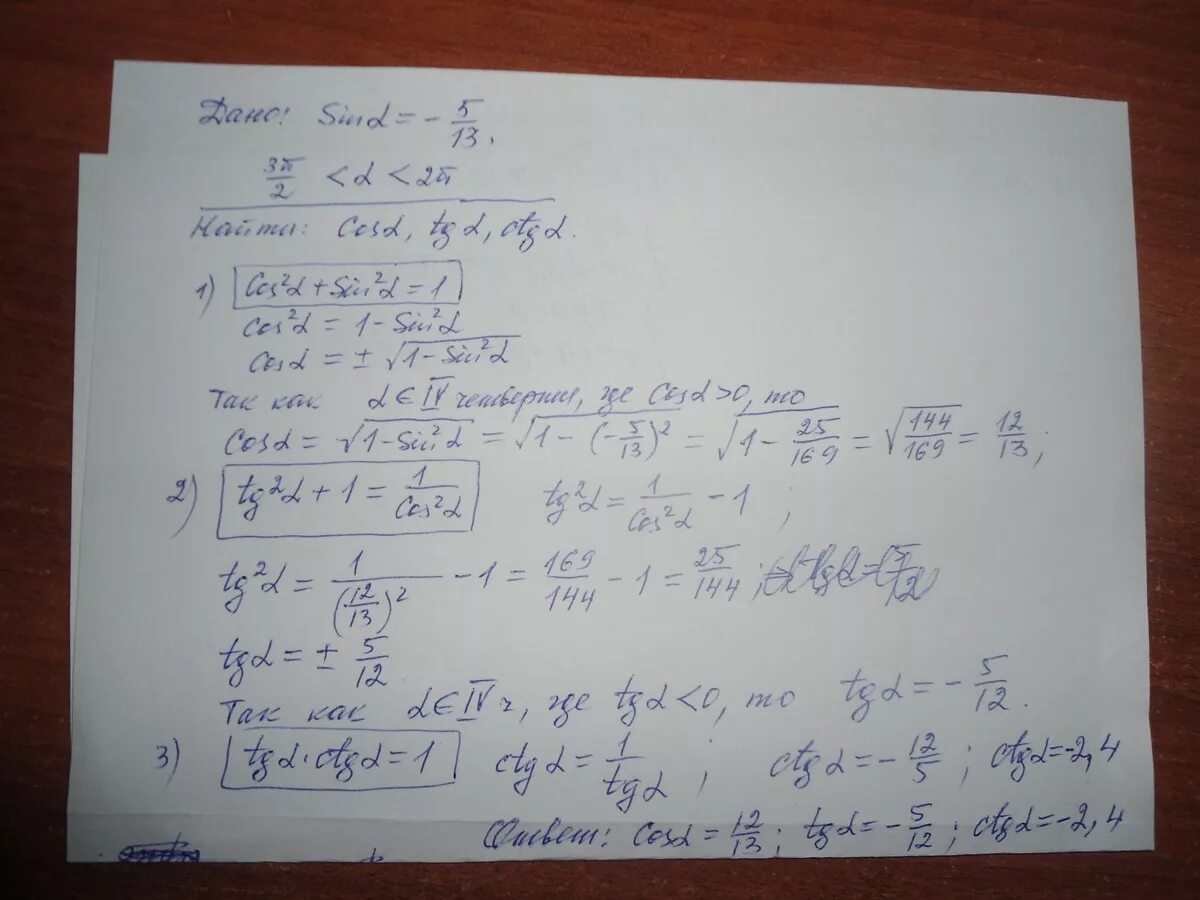 Дано: Sinα = - 5/13,
3π/2 < α < 2π
Найти: Cosα, tgα, ctgα.
1) Cos²α + Sin²α = 1
Cos²α = 1 - Sin²α
Cosα = ± √(1 - Sin²α)
Так как α ∈ IV четверти, где Cosα > 0, то
Cosα = √(1 - Sin²α) = √(1 - (-5/13)²) = √(1 - 25/169) = √(144/169) = 12/13;
2) tg²α + 1 = 1/Cos²α tg²α = 1/Cos²α - 1;
tg²α = 1/(12/13)² - 1 = 169/144 - 1 = 25/144;
tgα = ± 5/12
Так как α ∈ IV ч, где tgα < 0, то tgα = - 5/12.
3) tgα · ctgα = 1 ctgα = 1/tgα; ctgα = - 12/5; ctgα = -2,4
Ответ: Cosα = 12/13; tgα = - 5/12; ctgα = -2,4